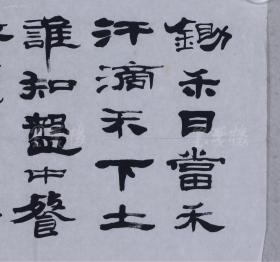 鋤禾日當禾
汗滴禾下土
誰知盤中餐